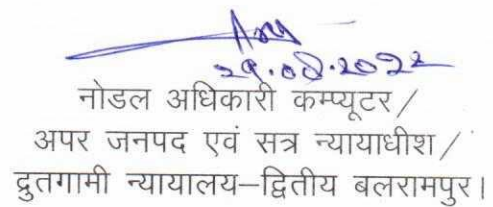 29.08.2022
नोडल अधिकारी कम्प्यूटर/
अपर जनपद एवं सत्र न्यायाधीश/
द्रुतगामी न्यायालय–द्वितीय बलरामपुर।